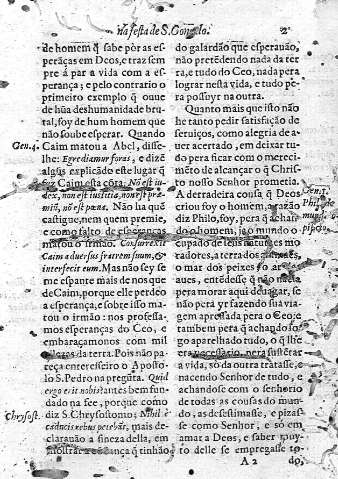 na festa de S. Gonçalo.
2
de homem q̃ sabe pòr as es-
perãças em Deos, e traz sem
pre á par a vida com a es-
perança; e pelo contrario o
primeiro exemplo q̃ ouue
de hũa deshumanidade bru-
tal, foy de hum homem que
não soube esperar. Quando
Gen. 4.
Caim matou a Abel, disse-
lhe: Egrediamur foras, e dizẽ
algũs explicãdo este lugar q̃
fez Caim esta cõta. Nõ est iu-
dex, non est iustitia, non est præ-
miũ, nõ est pœna. Não ha que
castigue, nem quem premie,
e como falto de esperanças
matou o irmão. Consurrexit
Caim aduersus fratrem suum, &
interfecit eum. Mas não sey se
me espante mais de nos que
de Caim, porque elle perdeo
a esperança, e sobre isso ma-
tou o irmão: nos professa-
mos esperanças do Ceo, e
embaraçamonos com mil
da terra. Pois não pa
reça enterreiseiro o Aposto-
lo S. Pedro na pregũta. Quid
ergo erit nobis? antes bem fun-
dado na fee, porque como
Chrysost.
diz S. Chrysostomo; Nihil è
caducis rebus pectebãt, mais de-
clarauão a sinceza della, em
mostrar a esperança q̃ tinhão
do galardão que esperauão,
não pretẽdendo nada da ter-
ra, e tudo do Ceo, nada pera
lograr nesta vida, e tudo pe-
ra possuyr na outra.
Quanto mais que isto não
he tanto pedir satisfação de
seruiços, como alegria de a-
uer acertado, em deixar tu-
do pera ficar com o mereci-
mẽto de alcançar o q̃ Chris-
to nosso Senhor prometia.
A derradeira cousa q̃ Deos
criou foy o homem, a razão
diz Philo, foy, pera q̃ achan-
do o homem, ja o mundo o
cupado de seus naturaes mo
radores, a terra dos animaes,
o mar dos peixes, o ar das
aues, entẽdesse q̃ não nacia
pera morar aqui deuagar, se
não pera yr fazendo sua via-
gem apressada pera o Ceo: e
tambem pera q̃ achando lo-
go aparelhado tudo, o q̃ lhe
era necessario, pera sustẽtar
a vida, só da outra tratasse, e
nacendo Senhor de tudo, e
achandose com o senhorio
de todas as cousas do mun-
do, as desestimasse, e pizas-
se como Senhor, e só em
amar a Deos, e saber muy-
to delle se empregasse to-
A 2
do,